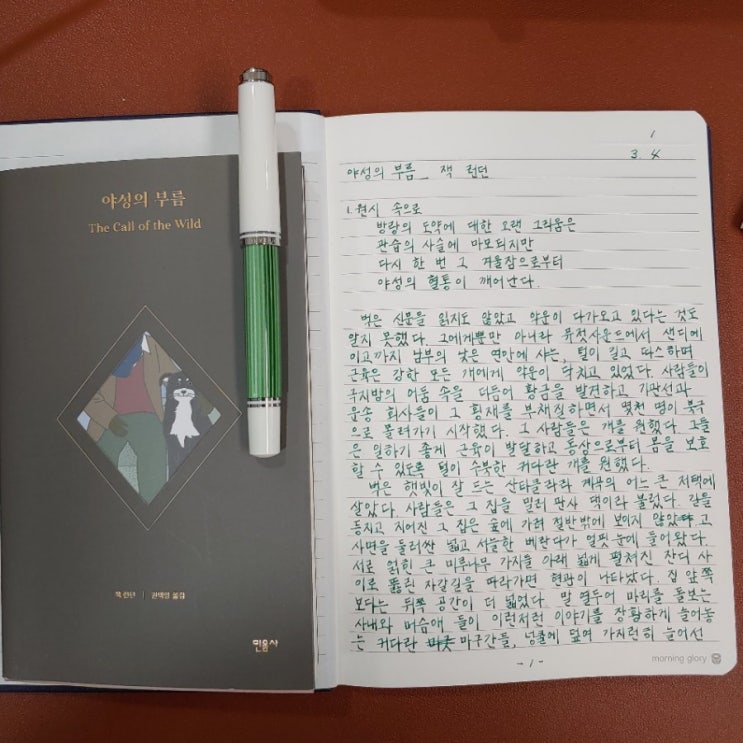 야성의 부름
The Call of the Wild
잭 런던 | 권택영 옮김
민음사
1
3. 4
야성의 부름_ 잭 런던
1. 원시 속으로
방랑의 도약에 대한 오랜 그리움은
관습의 사슬에 마모되지만
다시 한 번 그 겨울잠으로부터
야성의 혈통이 깨어난다.
벅은 신문을 읽지도 않았고 악운이 다가오고 있다는 것도
알지 못했다. 그에게뿐만 아니라 퓨젓사운드에서 샌디에
이고까지 남부의 낮은 연안에 사는, 털이 길고 따스하며
근육은 강한 모든 개에게 악운이 닥치고 있었다. 사람들이
극지방의 어둠 속을 더듬어 황금을 발견하고 기관선과
운송 회사들이 그 횡재를 부채질하면서 몇천 명이 북극
으로 몰려가기 시작했다. 그 사람들은 개를 원했다. 그들
은 일하기 좋게 근육이 발달하고 동상으로부터 몸을 보호
할 수 있도록 털이 수북한 커다란 개를 원했다.
벅은 햇빛이 잘 드는 산타클라라 계곡의 어느 큰 저택에
살았다. 사람들은 그 집을 밀러 판사 댁이라 불렀다. 길을
등지고 지어진 그 집은 숲에 가려 절반밖에 보이지 않았고
사면을 둘러싼 넓고 서늘한 베란다가 얼핏 눈에 들어왔다.
서로 얽힌 큰 미루나무 가지들 아래 넓게 펼쳐진 잔디 사
이로 뚫린 자갈길을 따라가면 현관이 나타났다. 집 앞쪽
보다는 뒤쪽 공간이 더 넓었다. 말 열두어 마리를 돌보는
사내와 머슴애 들이 이런저런 이야기를 장황하게 늘어놓
는 커다란 마구간들, 넝쿨에 덮여 가지런히 늘어선
-1-
morning glory